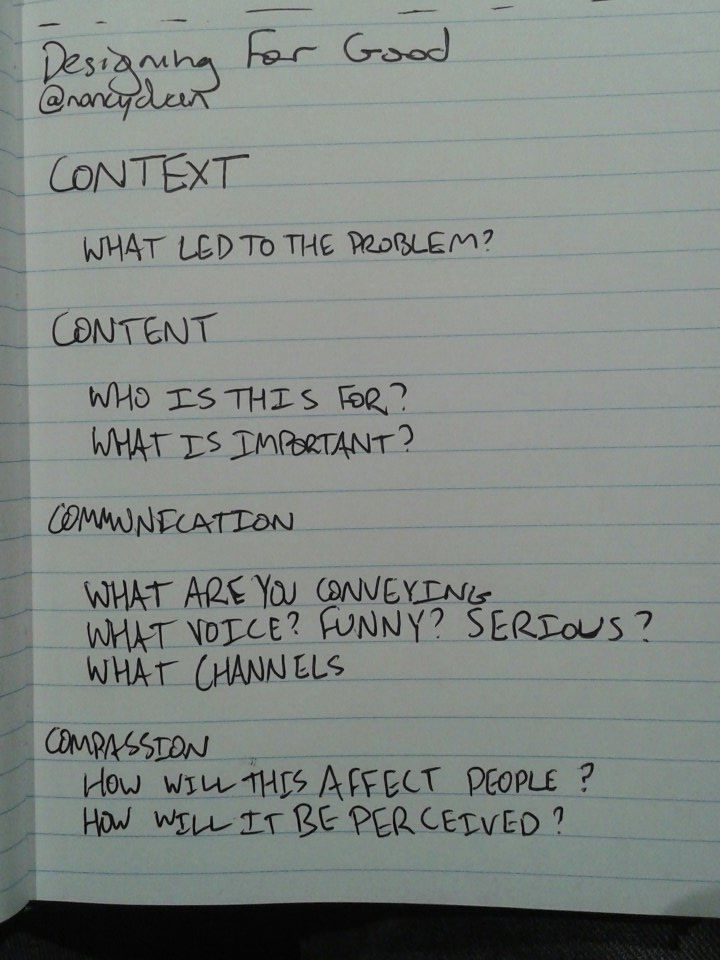 Designing For Good
@nancydeen
CONTEXT
WHAT LED TO THE PROBLEM?
CONTENT
WHO IS THIS FOR?
WHAT IS IMPORTANT?
COMMUNICATION
WHAT ARE YOU CONVEYING
WHAT VOICE? FUNNY? SERIOUS?
WHAT CHANNELS
COMPASSION
HOW WILL THIS AFFECT PEOPLE?
HOW WILL IT BE PERCEIVED?